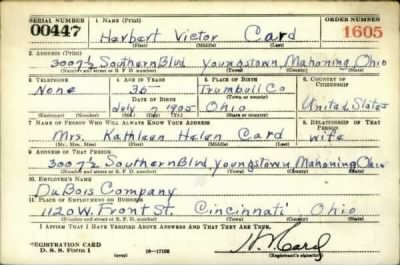 SERIAL NUMBER 1. NAME (Print) ORDER NUMBER
00447 Herbert Victor Card 1605
(First) (Middle) (Last)
2. ADDRESS (Print)
3007½ Southern Blvd Youngstown, Mahoning Ohio
(Number and street or R. F. D. number) (Town) (County) (State)
3. TELEPHONE 4. AGE IN YEARS 5. PLACE OF BIRTH 6. COUNTRY OF CITIZENSHIP
None 35 Trumbull Co
DATE OF BIRTH (Town or county)
July 1905 Ohio United States
(Mo.) (Day) (Yr.) (State or country)
7. NAME OF PERSON WHO WILL ALWAYS KNOW YOUR ADDRESS 8. RELATIONSHIP OF THAT PERSON
Mrs. Kathleen Helen Card wife
(Mr., Mrs., Miss) (First) (Middle) (Last)
9. ADDRESS OF THAT PERSON
3007½ Southern Blvd, Youngstown, Mahoning, Ohio
(Number and street or R. F. D. number) (Town) (County) (State)
10. EMPLOYER'S NAME
DuBois Company
11. PLACE OF EMPLOYMENT OR BUSINESS
1120 W. Front St. Cincinnati Ohio
(Number and street or R. F. D. number) (Town) (County) (State)
I AFFIRM THAT I HAVE VERIFIED ABOVE ANSWERS AND THAT THEY ARE TRUE.
REGISTRATION CARD
D. S. S. Form 1 16—17105 (Registrant's signature)